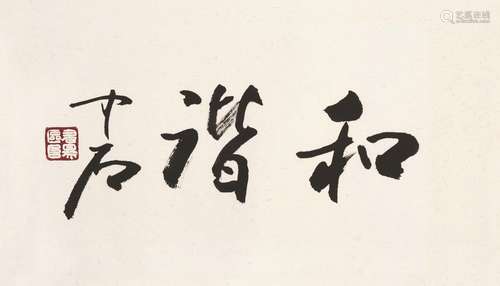 和谐
中石